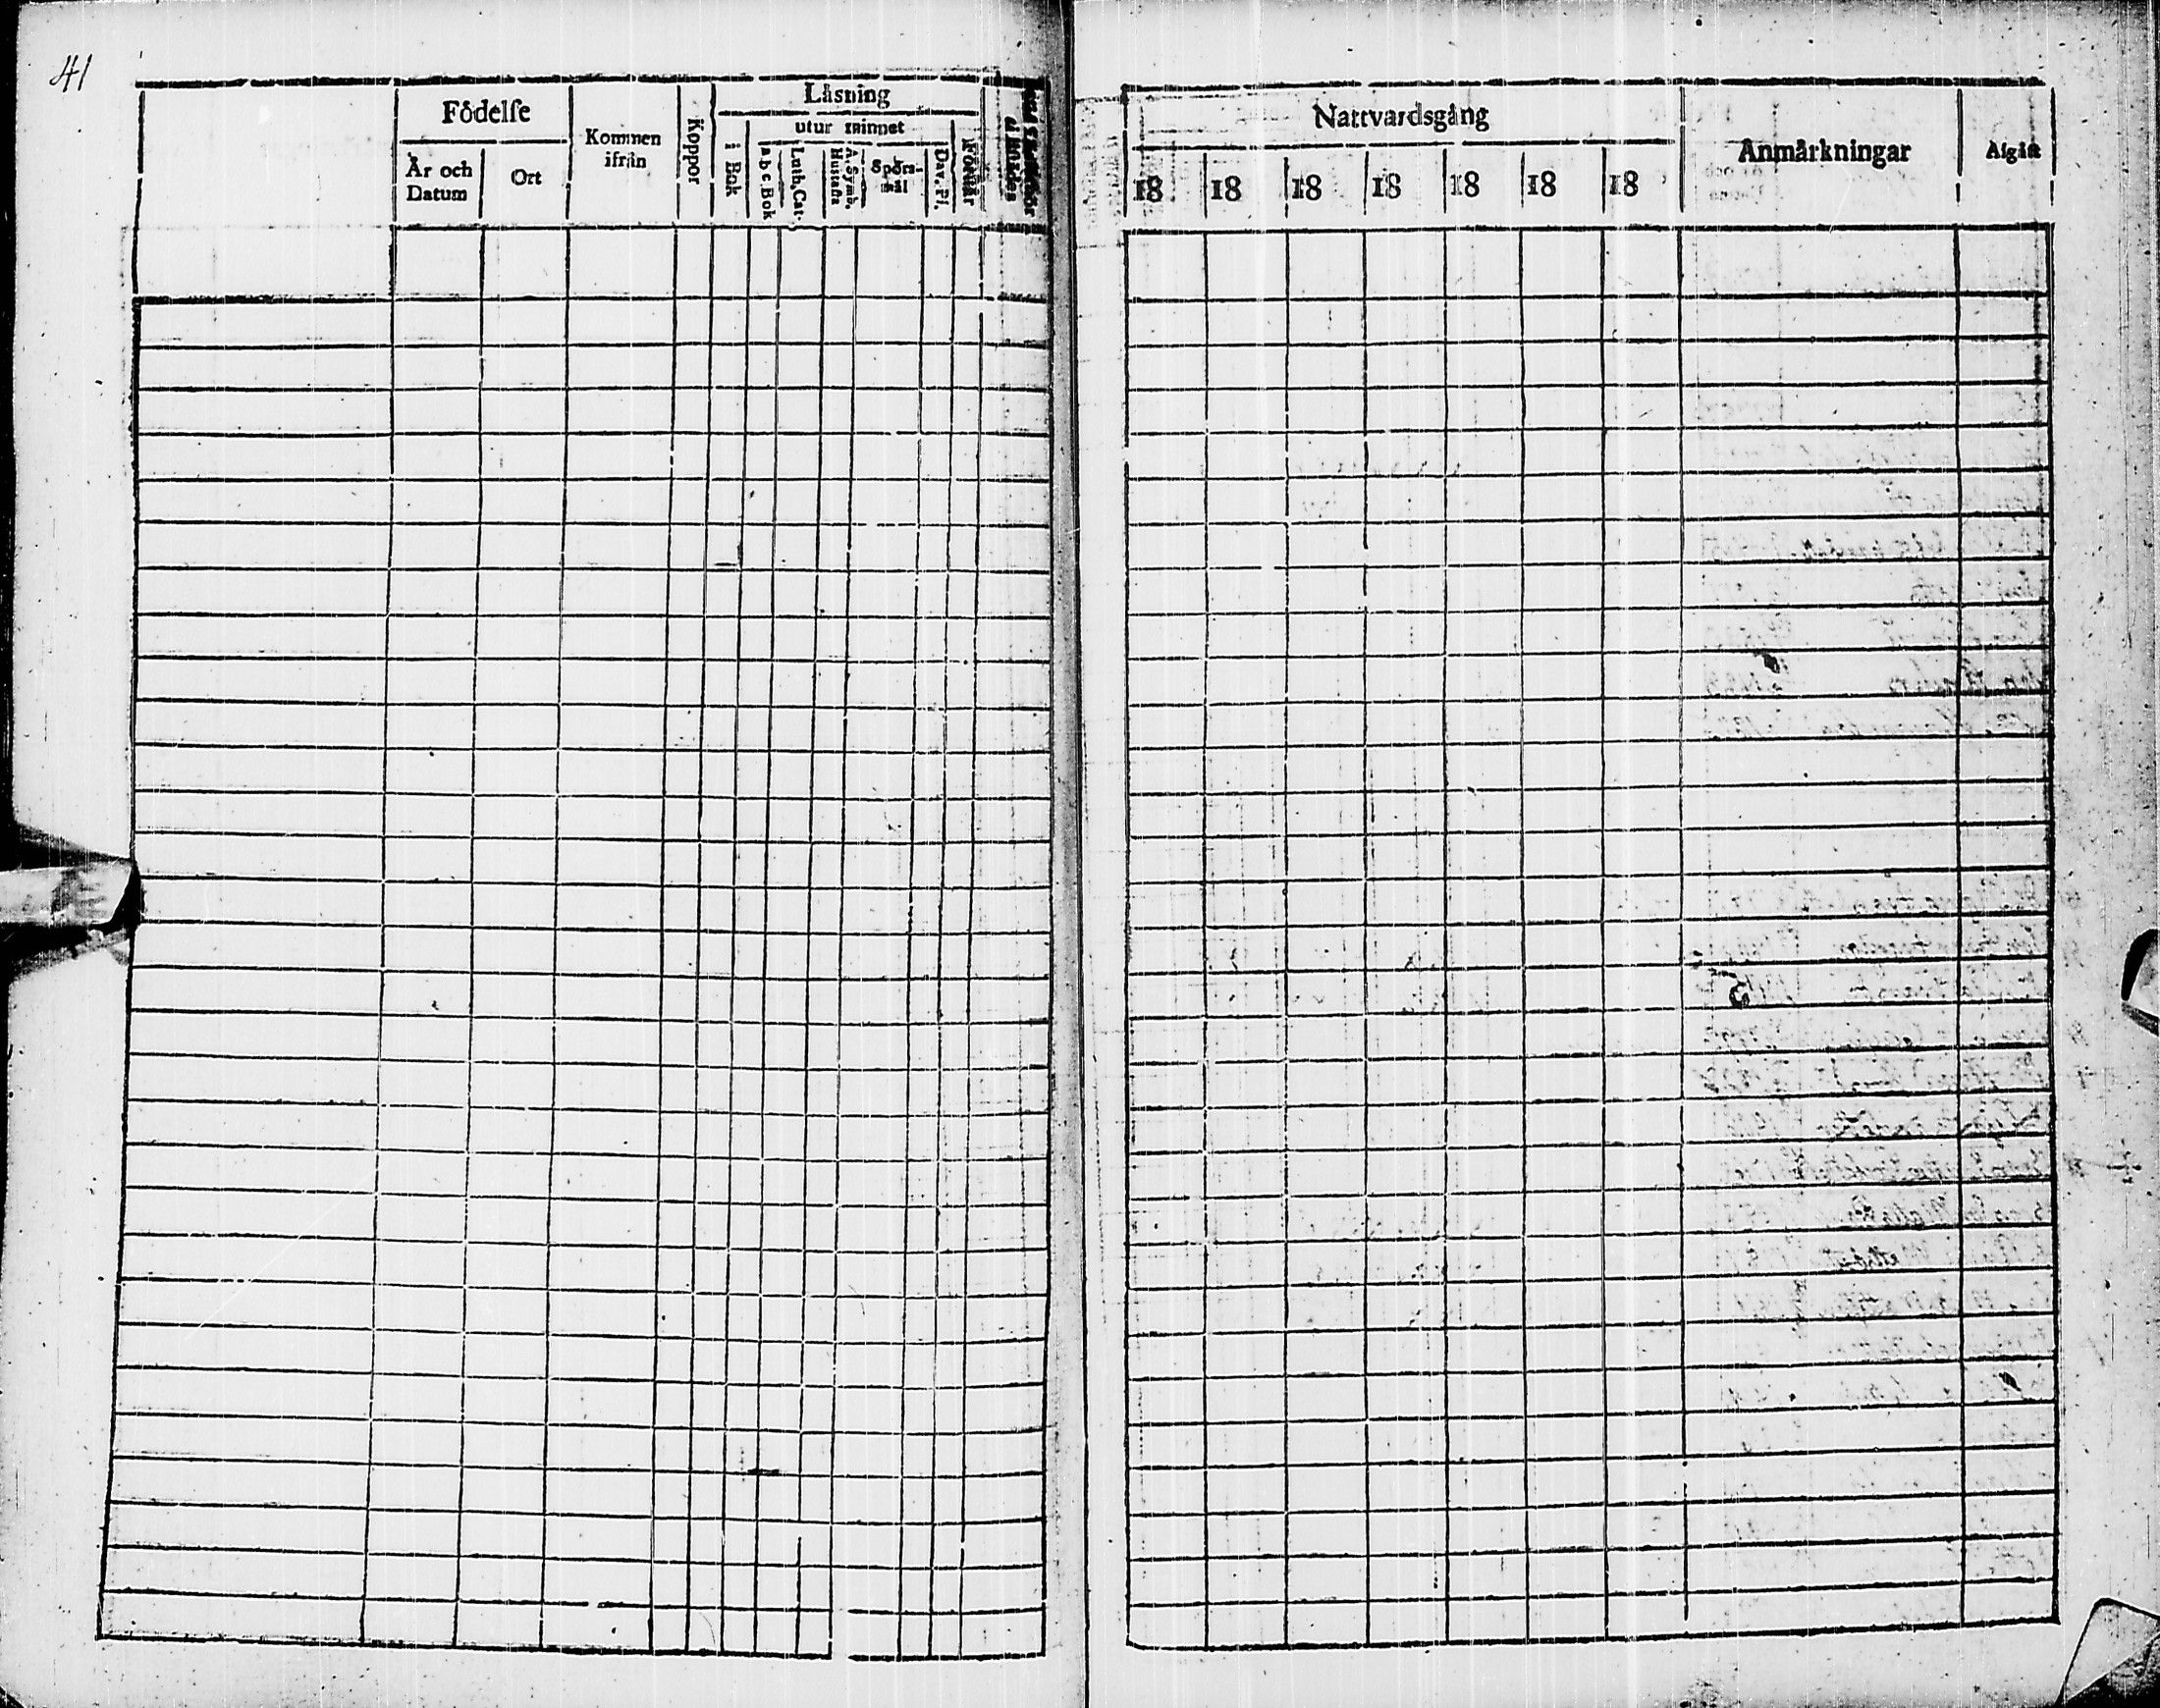 41
Födelse
År och
Datum
Ort
Kommen
ifrån
Koppor
Läsning
i Bok
utur minnet
a b c Bok
Luth. Cat.
A. Symb.
Hustafla
Spörs-
mål
Dav. Ps.
Förstår
Nattvardsgång
18 18 18 18 18 18 18
Anmärkningar
Afgått